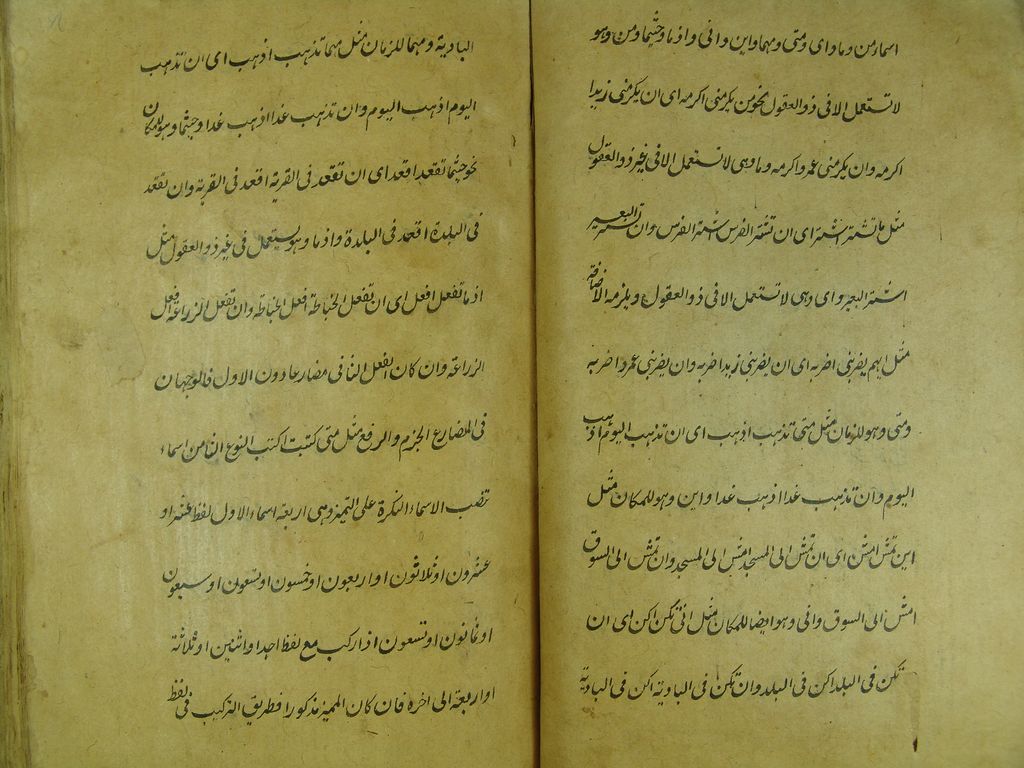 اسماء من وما وای ومتی ومهما واین وانی واذما وحیثما ومن وهو
لا تستعمل الا فی ذو العقول نحو من یکرمنی اکرمه ای ان یکرمنی زیدا
اکرمه وان یکرمنی عمرو اکرمه وما وهی لا تستعمل الا فی غیر ذو العقول
مثل ما تشتر اشتر ای ان تشتر الفرس اشتر الفرس وان تشتر البعیر
اشتر البعیر وای وهی لا تستعمل الا فی ذو العقول ویلزمه الاضافة
مثل ایهم یضربنی اضربه ای ان یضربنی زیدا اضربه وان یضربنی عمرو اضربه
ومتی وهو للزمان مثل متی تذهب اذهب ای ان تذهب الیوم اذهب
الیوم وان تذهب غدا اذهب غدا واین وهو للمکان مثل
این تمش امش ای ان تمش الی المسجد امش الی المسجد وان تمش الی السوق
امش الی السوق وانی وهو ایضا للمکان مثل انی تکن اکن ای ان
تکن فی البلد اکن فی البلد وان تکن فی البادیة اکن فی البادیة
البادیة ومهما للزمان مثل مهما تذهب اذهب ای ان تذهب
الیوم اذهب الیوم وان تذهب غدا اذهب غدا وحیثما وهو للمکان
نحو حیثما تقعد اقعد ای ان تقعد فی القریة اقعد فی القریة وان تقعد
فی البلدة اقعد فی البلدة واذما وهو یستعمل فی غیر ذو العقول مثل
اذما تفعل افعل ای ان تفعل الخیاطة افعل الخیاطة وان تفعل الزراعة افعل
الزراعة وان کان الفعل الثانی مضارعا دون الاول فالوجهان
فی المضارع الجزم والرفع مثل متی کتبت اکتب النوع الثامن اسماء
تنصب الاسماء النکرة علی التمیز وهی اربعة اسماء الاول لفظ عشر او
عشرون او ثلاثون او اربعون او خمسون او ستون او سبعون
او ثمانون او تسعون اذا رکب مع لفظ احد او اثنین او ثلاثة
او اربعة الی اخره فان کان الممیز مذکورا فطریق الترکیب فی لفظ